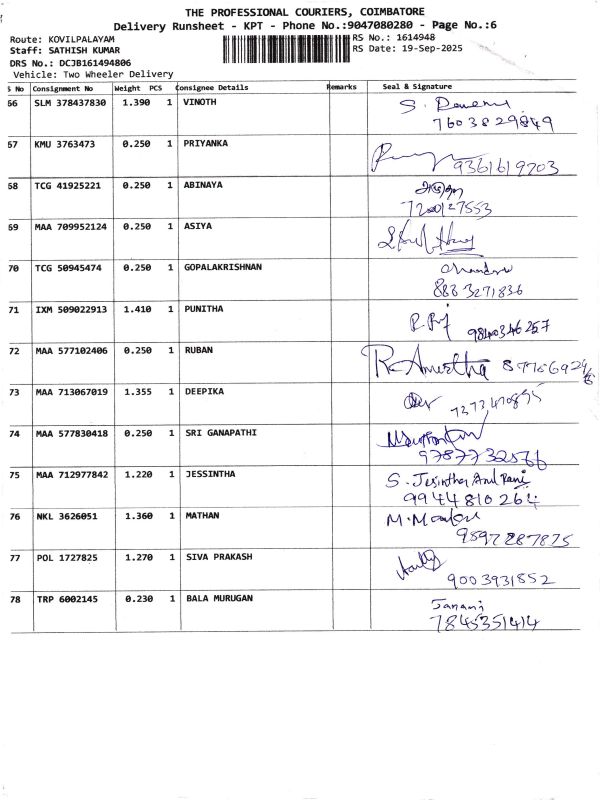 THE PROFESSIONAL COURIERS, COIMBATORE
Delivery Runsheet - KPT - Phone No.:9047080280 - Page No.:6
Route: KOVILPALAYAM RS No.: 1614948
Staff: SATHISH KUMAR RS Date: 19-Sep-2025
DRS No.: DCJB161494806
Vehicle: Two Wheeler Delivery
S No Consignment No Weight PCS Consignee Details Remarks Seal & Signature
66 SLM 378437830 1.390 1 VINOTH S.
7603829849
67 KMU 3763473 0.250 1 PRIYANKA
9361619203
68 TCG 41925221 0.250 1 ABINAYA
7200127553
69 MAA 709952124 0.250 1 ASIYA
70 TCG 50945474 0.250 1 GOPALAKRISHNAN
8883271836
71 IXM 509022913 1.410 1 PUNITHA
9840346257
72 MAA 577102406 0.250 1 RUBAN
73 MAA 713067019 1.355 1 DEEPIKA
74 MAA 577830418 0.250 1 SRI GANAPATHI
9787732566
75 MAA 712977842 1.220 1 JESSINTHA S. Jesintha Arul Rani
9944810264
76 NKL 3626051 1.360 1 MATHAN M.
9597287875
77 POL 1727825 1.270 1 SIVA PRAKASH
9003931852
78 TRP 6002145 0.230 1 BALA MURUGAN Janani
7845351414